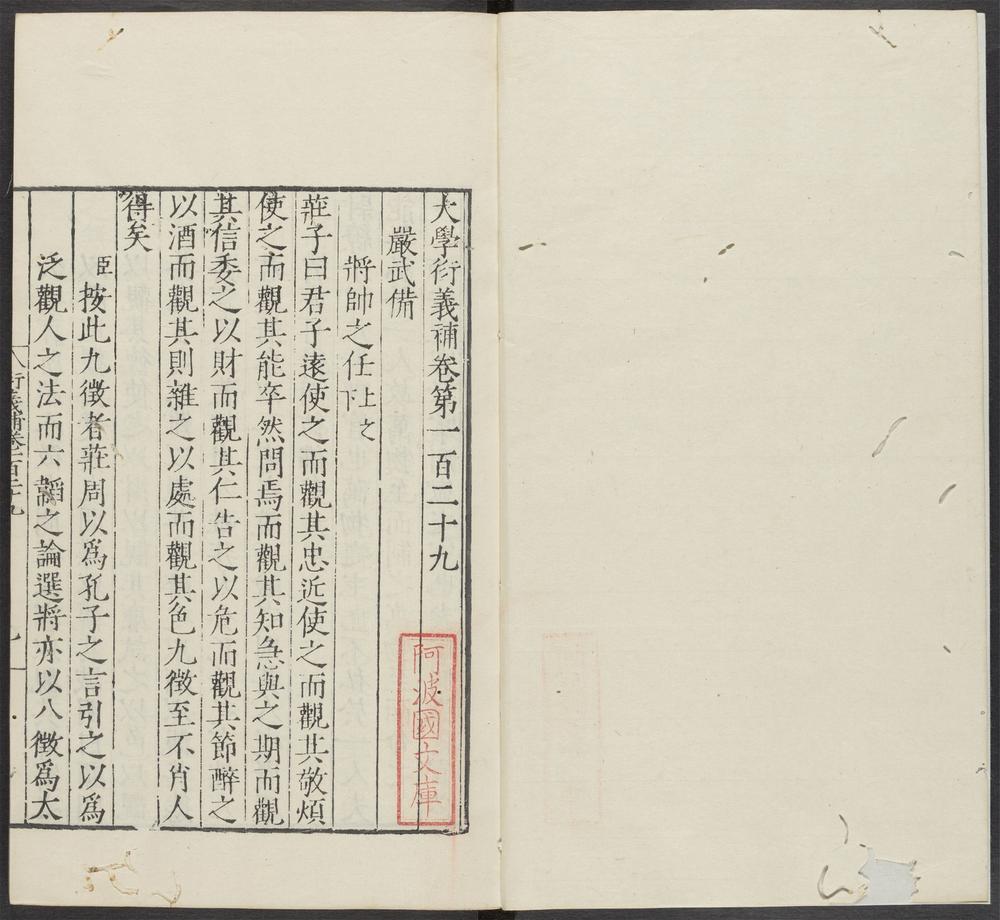 大學衍義補卷第一百二十九
嚴武備
將帥之任上之下
莊子曰君子遠使之而觀其忠近使之而觀其敬煩
使之而觀其能卒然問焉而觀其知急與之期而觀
其信委之以財而觀其仁告之以危而觀其節醉之
以酒而觀其則雜之以處而觀其色九徵至不肖人
得矣
臣按此九徵者莊周以爲孔子之言引之以爲
泛觀人之法而六韜之論選將亦以八徵爲太
衍義補卷一百二十九
阿波國文庫